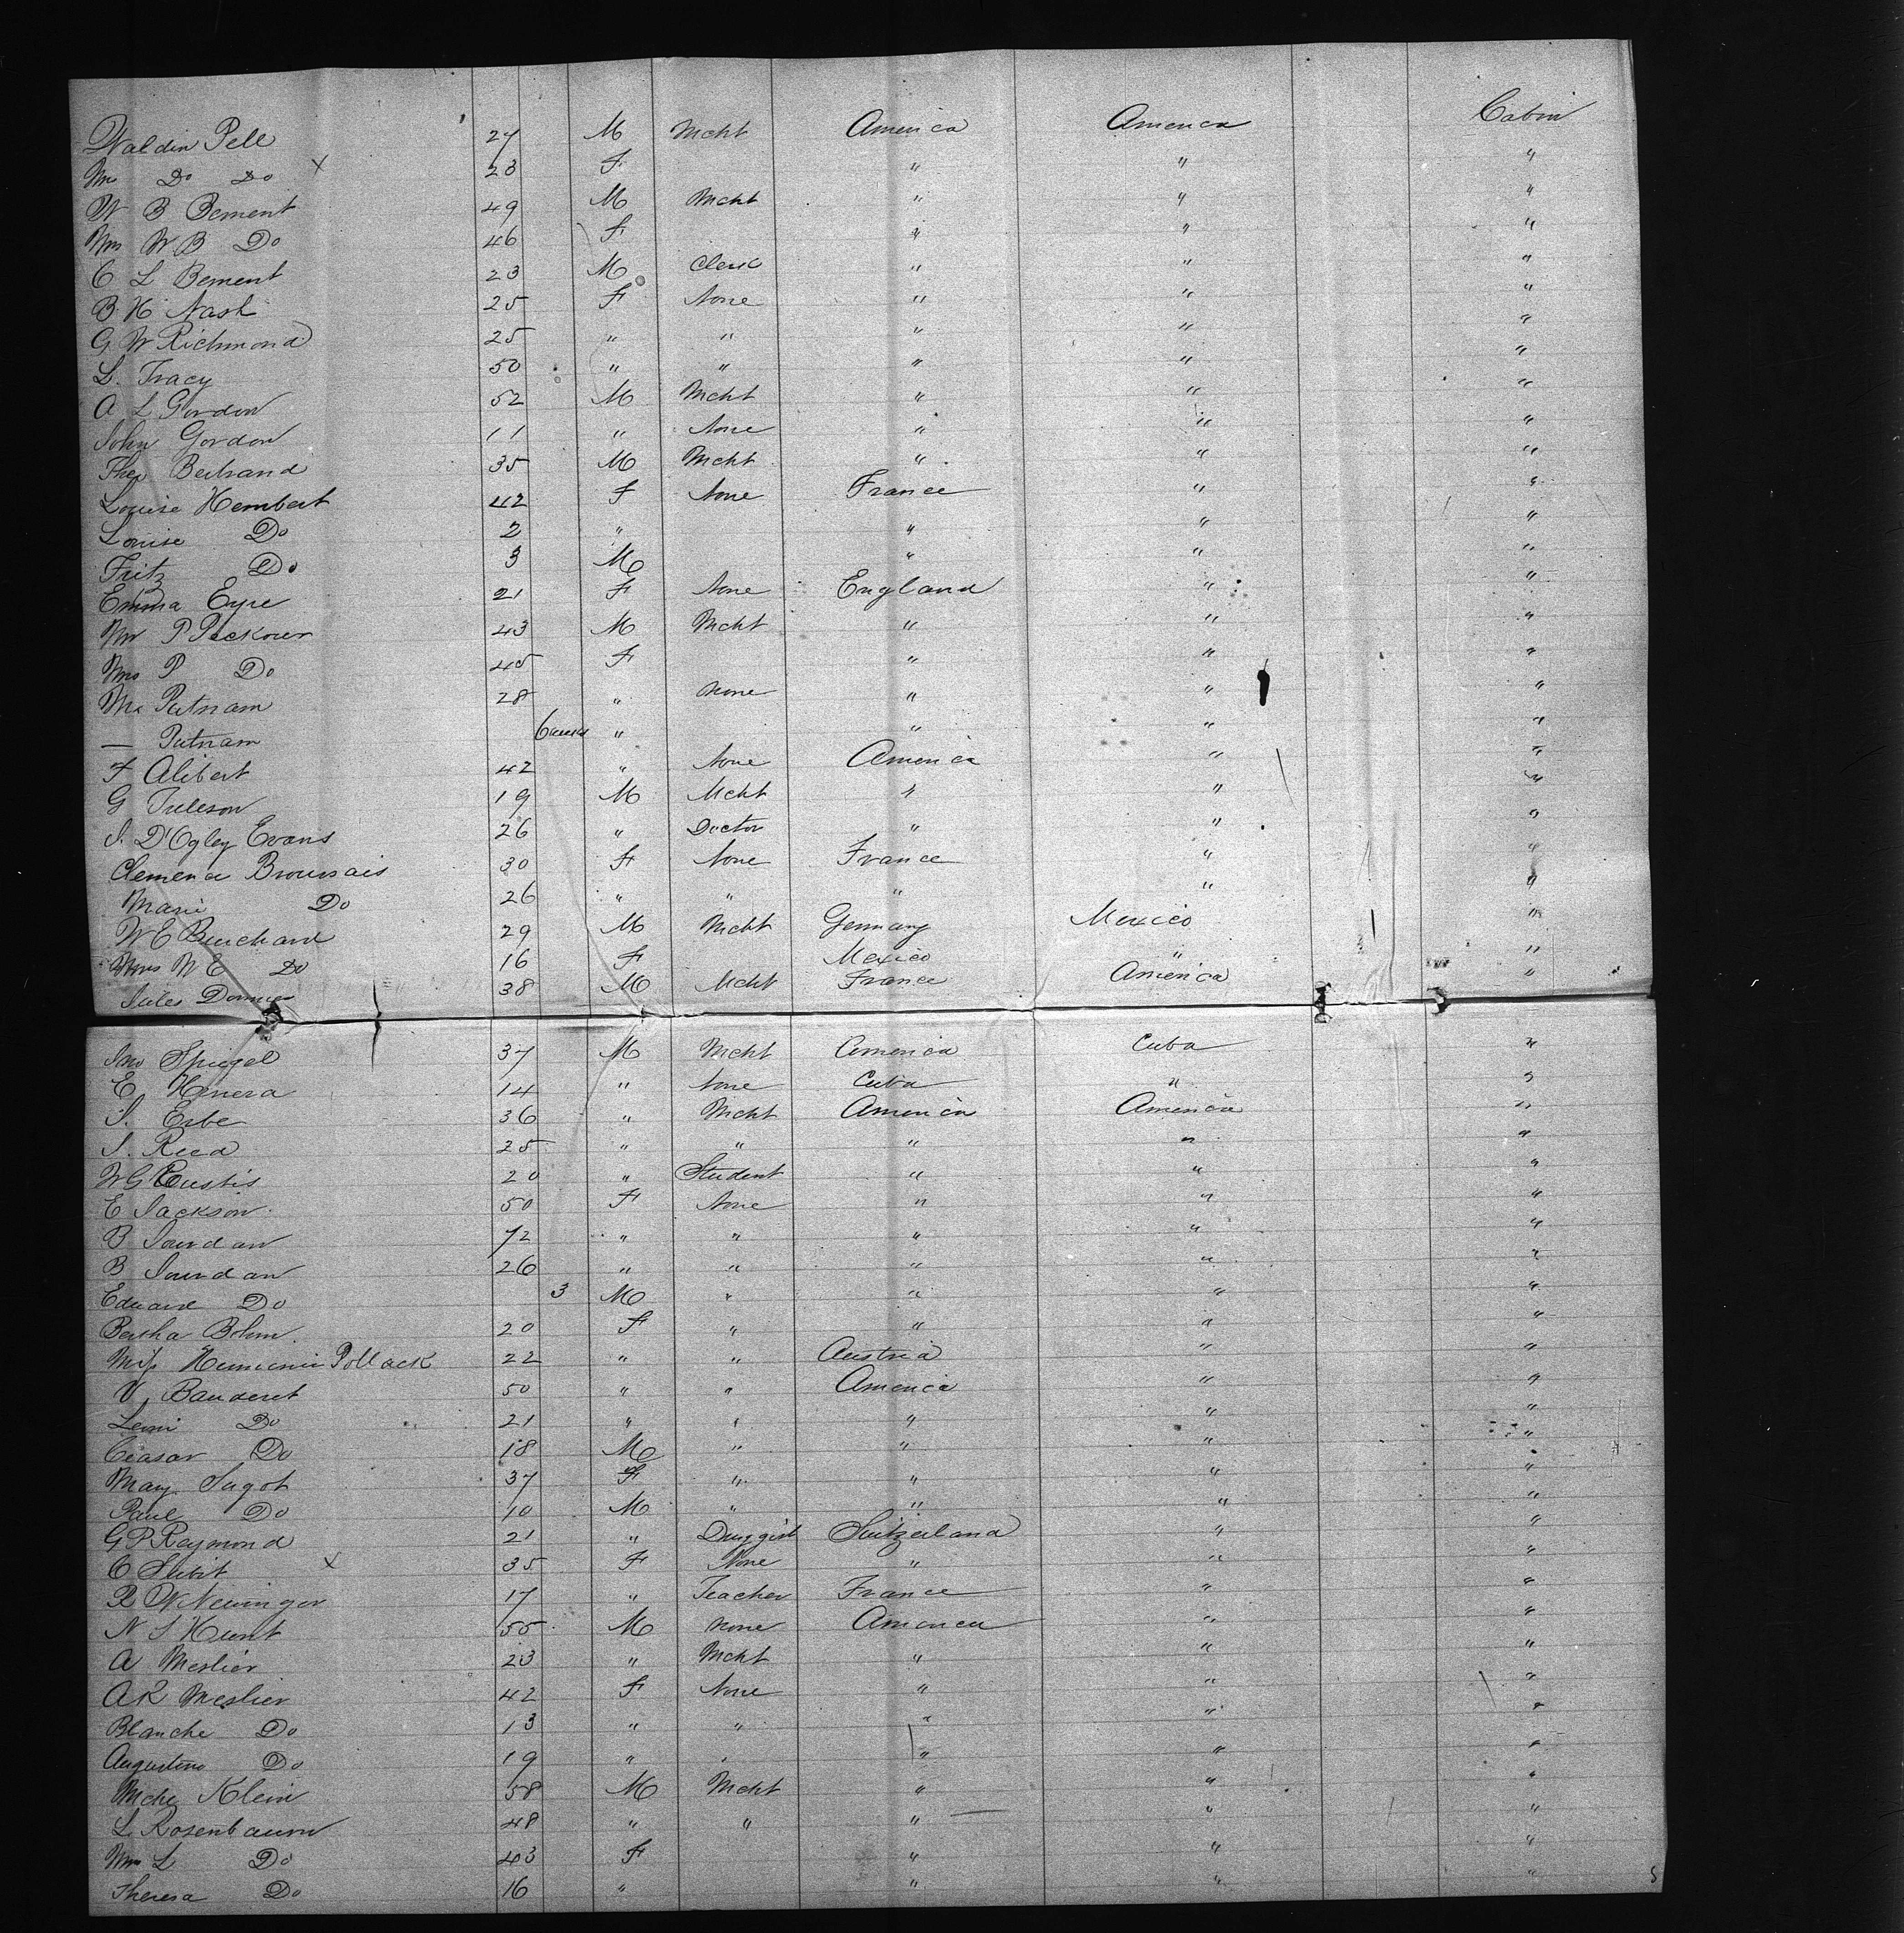 Waldin Pell 27 M Mcht America America Cabin
Mrs Do Do X 23 F " " "
W B Bement 49 M Mcht " " "
Mrs W B Do 46 F " " "
C L Bement 23 M Clerk " " "
B. H Nash 25 F None " " "
G W Richmond 25 " " " " "
L. Tracy 50 " " " " "
A L Gordon 52 M Mcht " " "
John Gordon 11 " None " " "
Theo Bertrand 35 M Mcht " " "
Louise Hembert 42 F None France " "
Louise Do 2 " " " "
Fritz Do 3 M " " "
Emma Eyre 21 F None England " "
Mr P Peckover 43 M Mcht " " "
Mrs P Do 45 F " " "
Mrs Putnam 28 " None " " "
— Putnam 6 weeks " " " "
F Alibert 42 " None America " "
G Tuleson 19 M Mcht " " "
S. D'Ogley Evans 26 " Doctor " " "
Clemence Broussais 30 F None France " "
Marie Do 26 " " " " "
W E Burchard 29 M Mcht Germany Mexico "
Mrs W E Do 16 F Mexico " "
Jules 38 M Mcht France America "
Jno Spiegel 37 M Mcht America Cuba "
E Herrera 14 " None Cuba " "
S. Erbe 36 " Mcht America America "
S. Reed 25 " " " " "
W G Eustis 20 " Student " " "
E Jackson 50 F None " " "
B Jourdan 72 " " " " "
B Jourdan 26 " " " " "
Edward Do 3 M " " " "
Bertha Bohm. 20 F " " " "
Miss Pollack 22 " " Austria " "
V. Bauderet 50 " " America " "
Do 21 " " " " "
Ceasar Do 18 M " " " "
Mary Sugot 37 F " " " "
Paul Do 10 M " " " "
G P Raymond 21 " Druggist Switzerland " "
C X 35 F None " " "
17 " Teacher France " "
N S Hunt 55 M None America " "
A Meslier 23 " Mcht " " "
A R Meslier 42 F None " " "
Blanche Do 13 " " " " "
Augustine Do 19 " " " " "
Klein 58 M Mcht " " "
L. Rosenbaum 48 " " " " "
Mrs L Do 43 F " " "
Theresa Do 16 " " " "